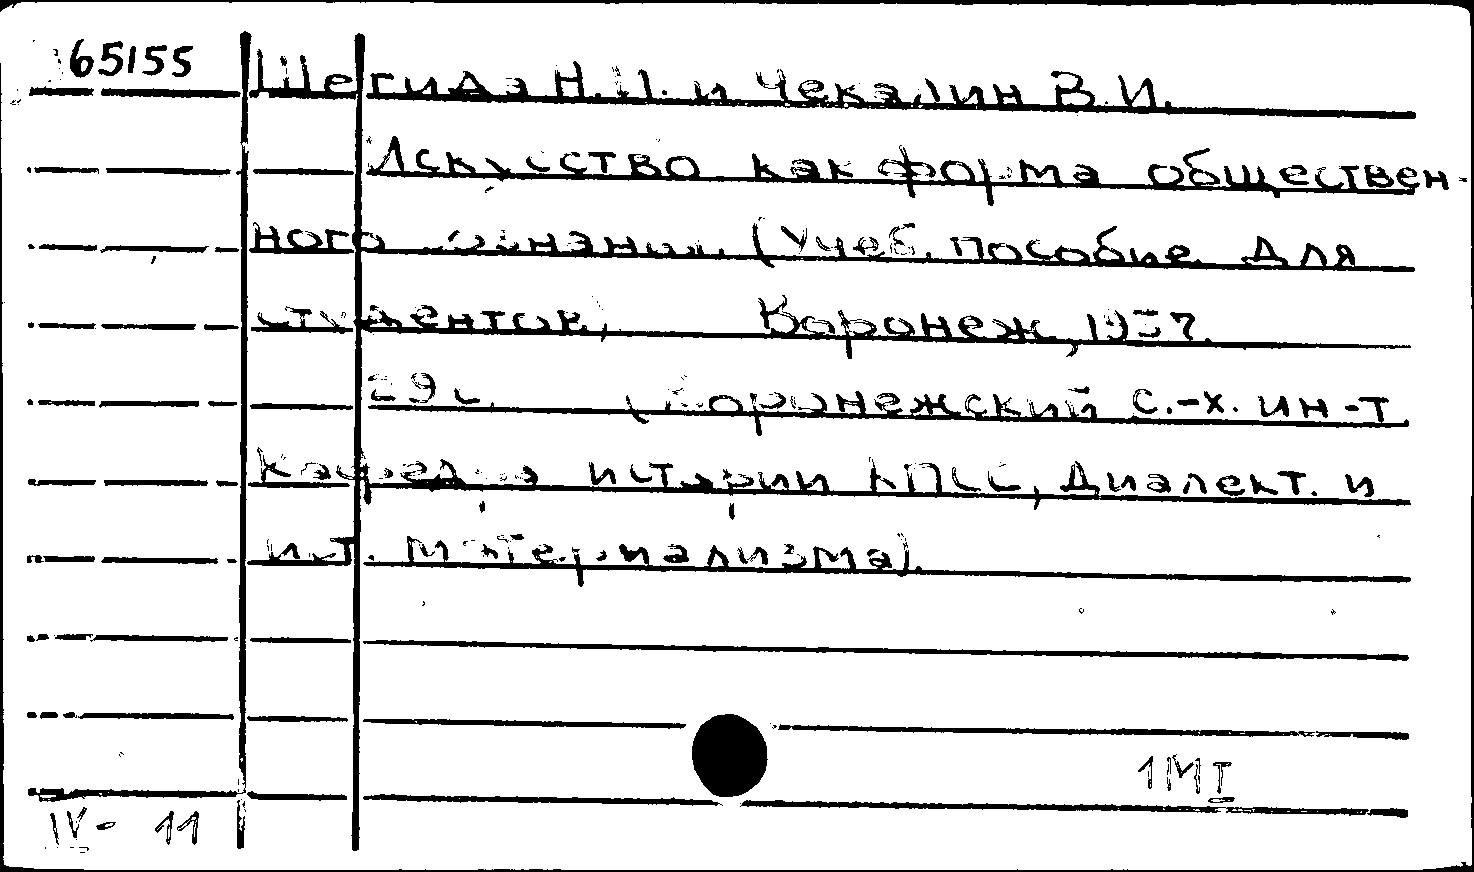 65155
Шегида Н.П. и Чекалин В.И.
Искусство как форма обществен-
ного сознания. (Учеб. пособие для
студентов) Воронеж, 1957.
29 с. (Воронежский с.-х. ин-т
Кафедра истории КПСС, диалект. и
ист. материализма).
1МI
IV- 11